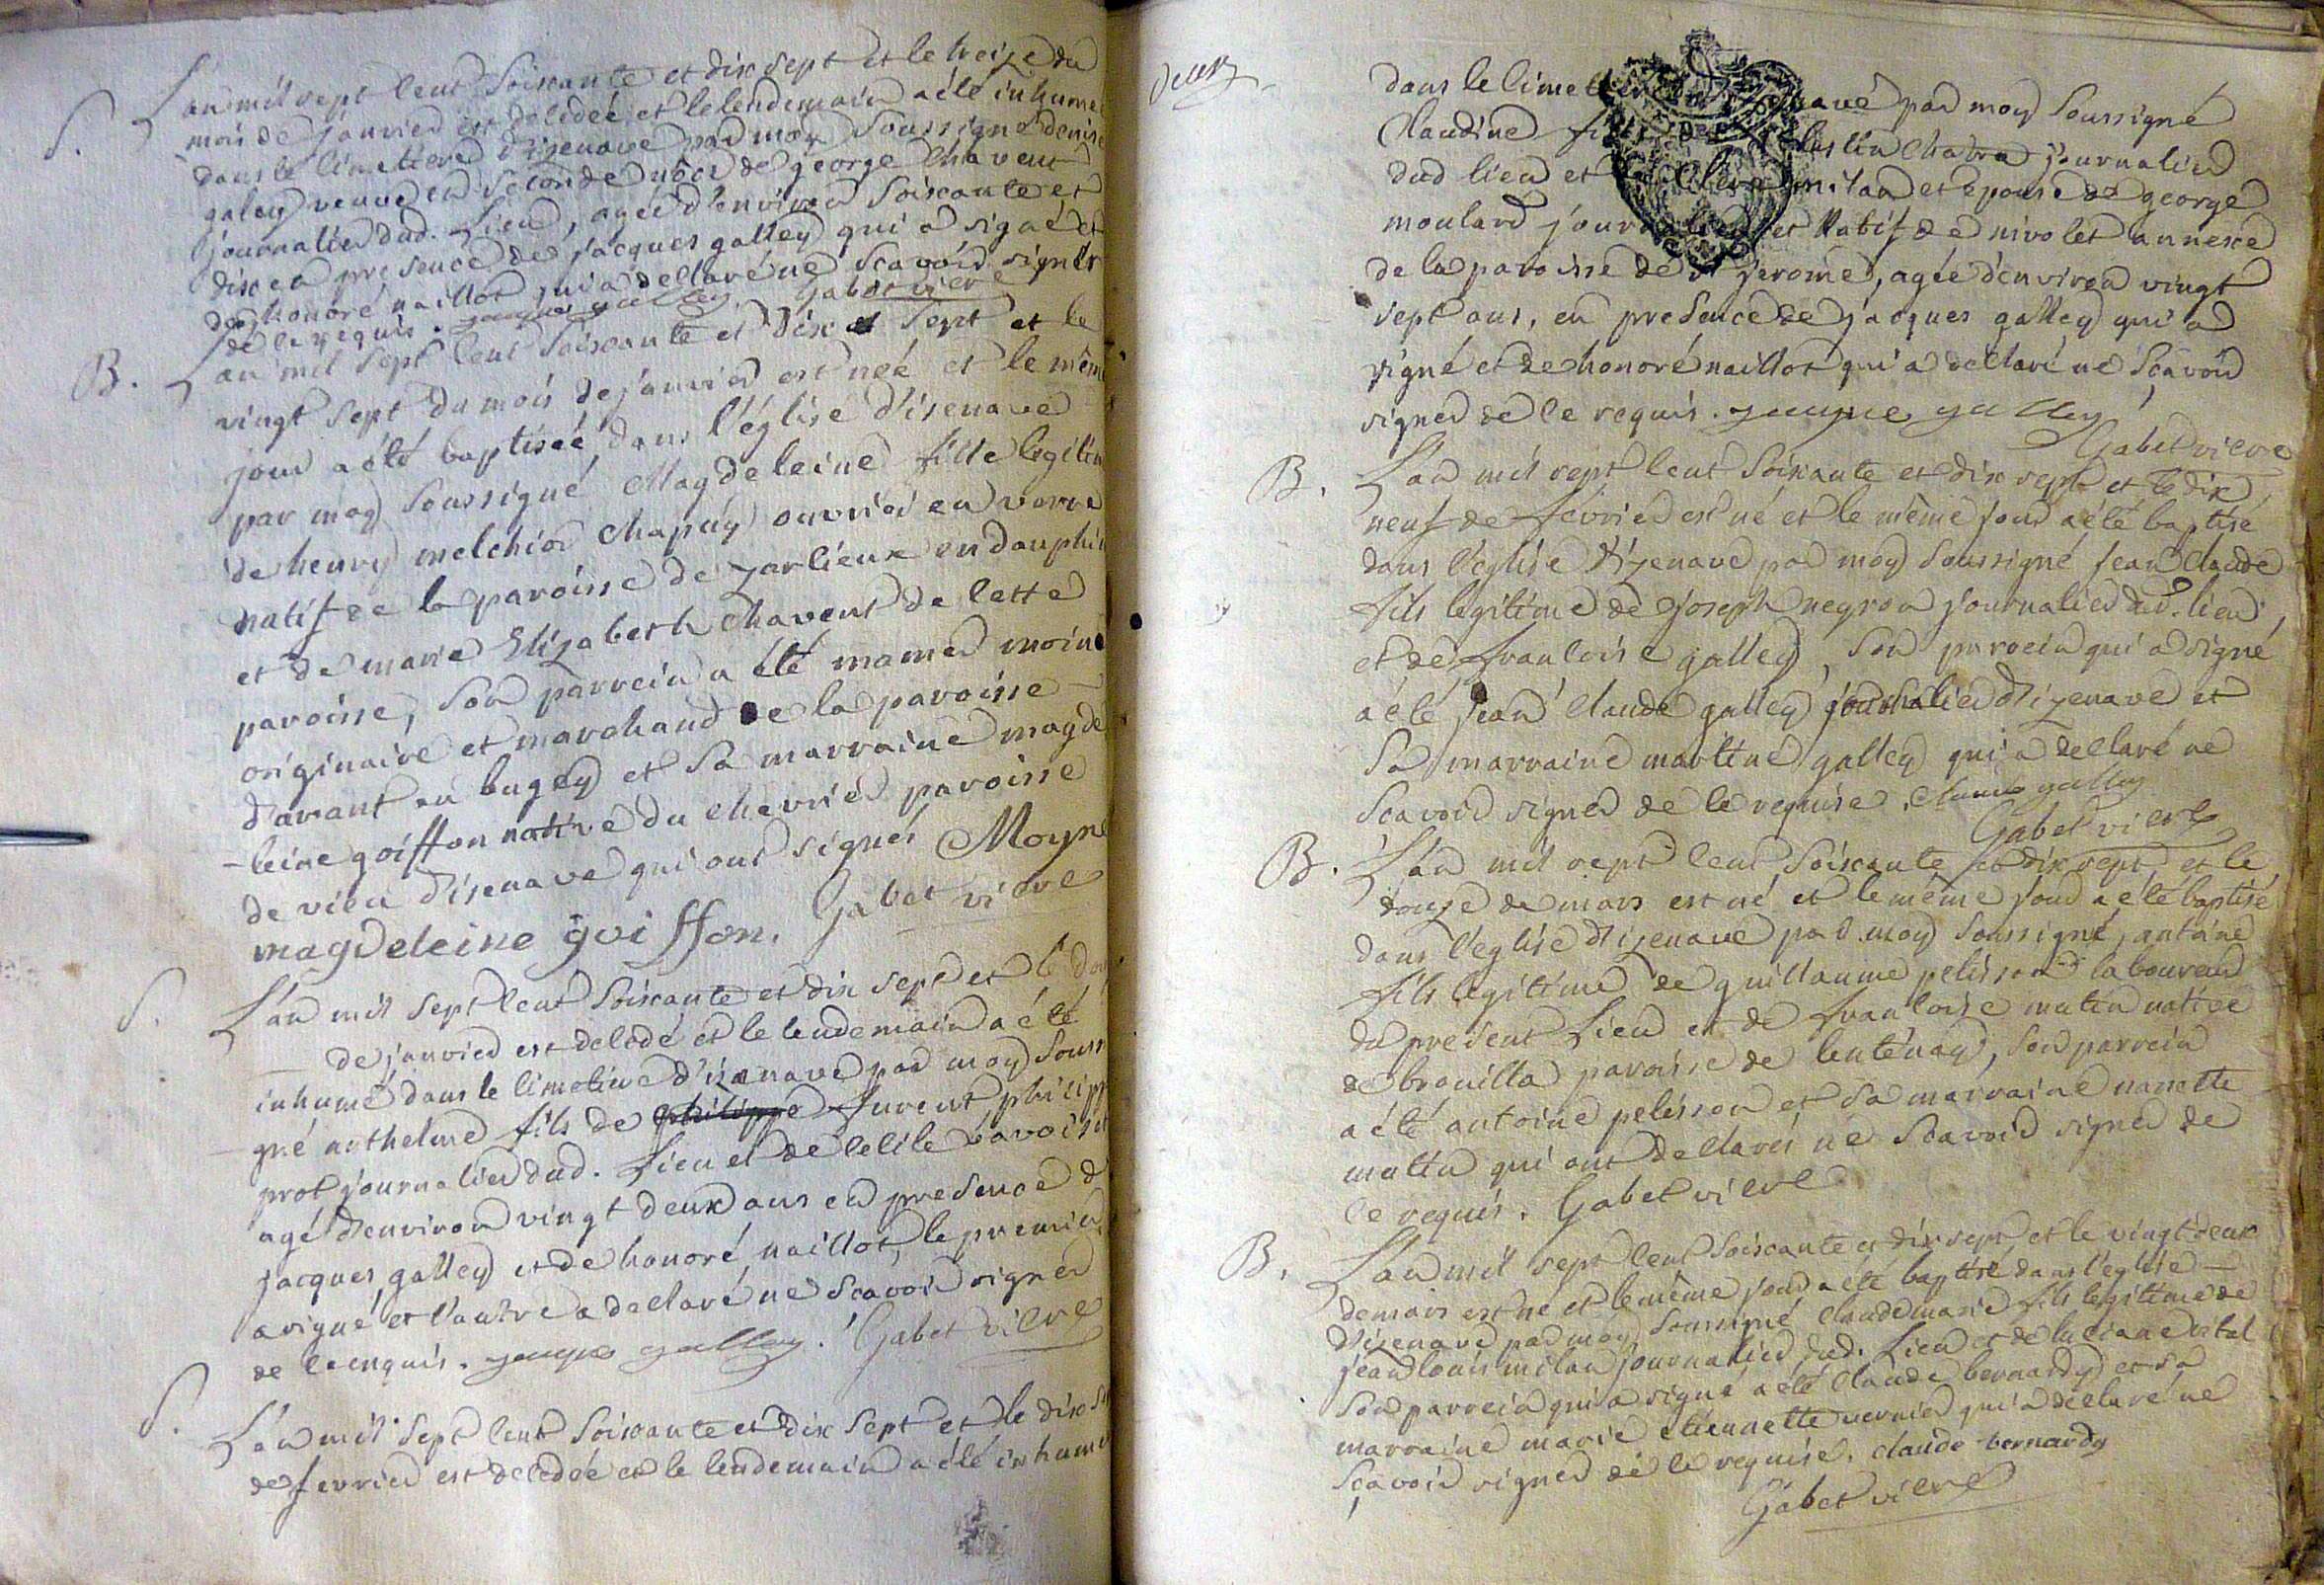 S. L'an mil sept cent soixante et dix sept et le treize du
mois de janvier est decedée et le lendemain a été inhumée
dans le cimetiere d'isenave par moy soussigné denise
galley veuve en seconde nôce de george chavent
journalier dud. lieu, agée d'environ soixante et
dix en presence de jacques galley qui a signé et
de honoré naillot qui a declaré ne scavoir signer
de ce requis. jaque galley Gabet vicre
B. L'an mil sept cent soixante et dix sept et le
vingt sept du mois de janvier est née et le même
jour a été baptisée dans l'église d'isenave
par moy soussigné Magdeleine fille legitim
de henry melchior chapuy ouvrier en verre
natif de la paroisse de zarlieux en dauphin
et de marie Elizabeth chavent de cette
paroisse, son parrein a été mamer moine
originaire et marchand de la paroisse
d'arant en bugey et sa marraine magde
-leine goiffon native du chevrier paroisse
de vieu d'isenave qui ont signés Moyne
magdeleine goiffon. Gabet vicre
S. L'an mil sept cent soixante et dix sept et le dou
de janvier est decedé et le lendemain a été
inhumé dans le cimetiere d'isenave par moy souss
gné anthelme fils de philippe furent philipp
prot journalier dud. lieu et de cecile savoisi
agé d'environ vingt deux ans en presence d
jacques galley et de honoré naillot, le premier
a signé et l'autre a declaré ne scavoir signer
de ce enquis. jaque galley. Gabet vicre
S. L'an mil sept cent soixante et dix sept et le dix s
de fevrier est decedée et le lendemain a été inhumé
deux
dans le cimetiere d'isenave par moy soussigné
Claudine fille de celestin chatra journalier
dud lieu et de claire milan et epouse de george
moulard journalier et natif de nivolet annexe
de la paroisse de st jerome, agée d'environ vingt
sept ans, en presence de jacques galley qui a
signé et de honoré naillot qui a declaré ne scavoir
signer de ce requis. jaque galley
Gabet vicre
B. L'an mil sept cent soixante et dix sept et le dix
neuf de fevrier est né et le même jour a été baptisé
dans l'église d'izenave par moy soussigné jean claude
fils legitime de joseph negron journalier dud. lieu,
et de francoise galley, son parrein qui a signé
a été jean claude galley journalier d'izenave et
sa marraine martine galley qui a declaré ne
scavoir signer de ce requise. claude galley
Gabet vicre
B. L'an mil sept cent soixante et dix sept et le
douze de mars est né et le même jour a été baptisé
dans l'eglise d'izenave par moy soussigné, antoine
fils legitime de guillaume pelisson laboureur
du present lieu et de francoise mutin native
de brouilla paroisse de lentenay, son parrein
a été antoine pelisson et sa marraine nanette
mutin qui ont declarés ne scavoir signer de
ce requis. Gabet vicre
B. L'an mil sept cent soixante et dix sept et le vingt deux
de mars est né et le même jour a été baptisé dans l'eglise
d'izenave par moy soussigné claude marie fils legitime de
jean louis milan journalier dud. lieu et de luciane vital
son parrein qui a signé a été claude bernardy et sa
marraine marie etiennette vernier qui a declaré ne
scavoir signer de ce requise. claude bernardy
Gabet vicre